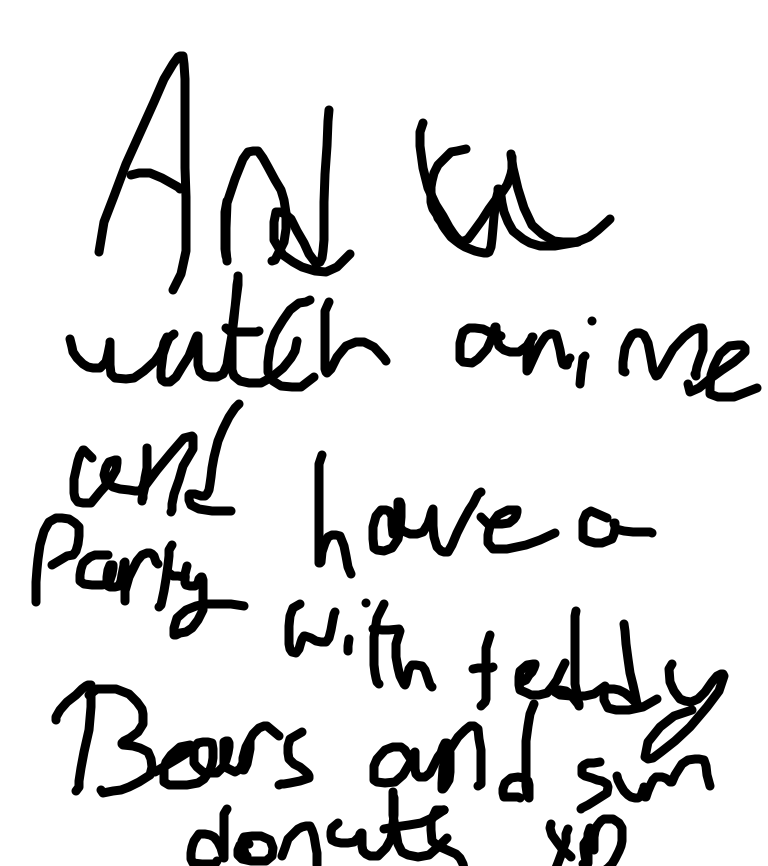 And
watch anime
and have a
Party with teddy
Bears and sum
donuts XD